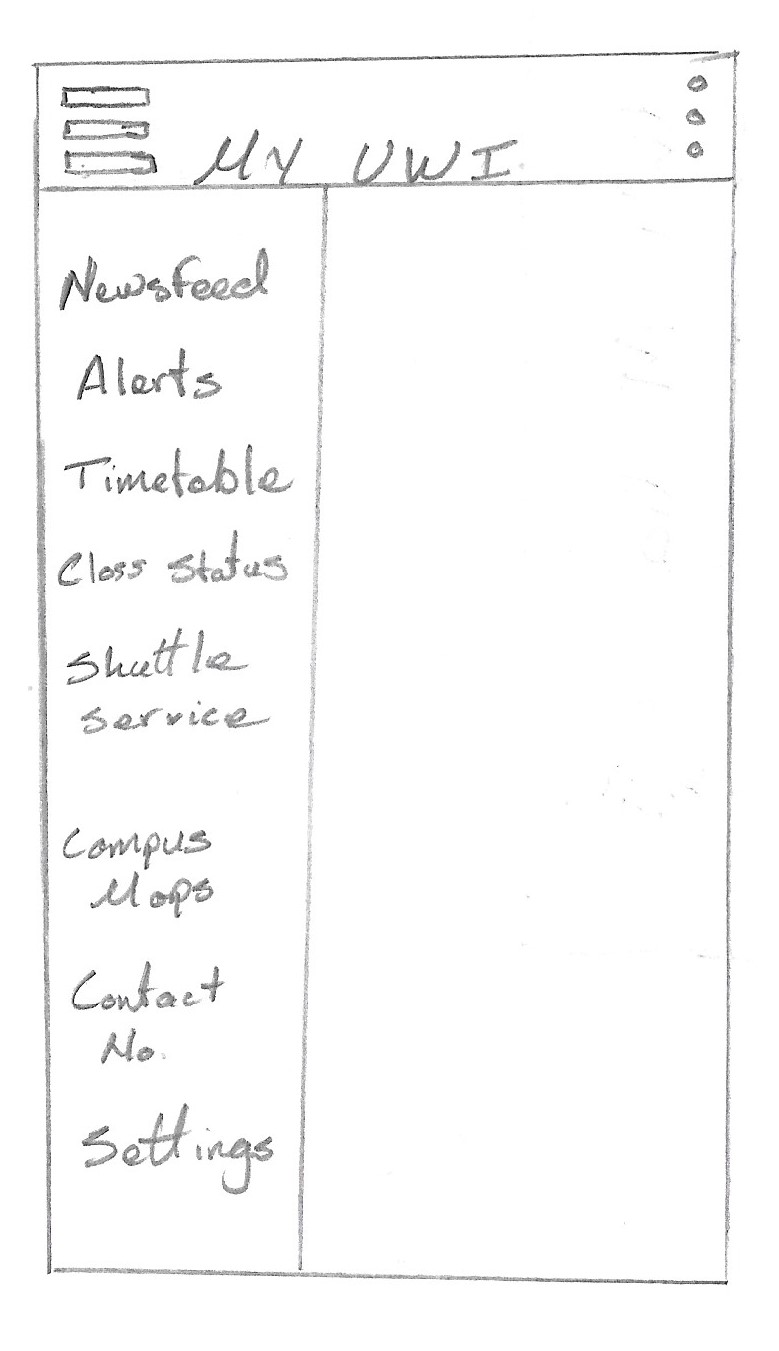 MY UWI
Newsfeed
Alerts
Timetable
Class Status
Shuttle
service
Campus
Maps
Contact
No.
Settings